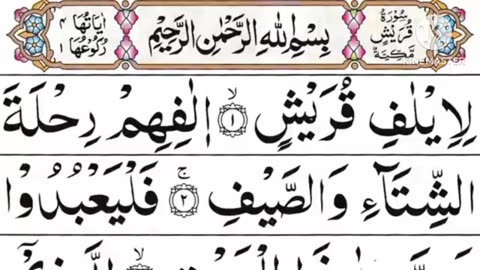 سُوْرَةُ قُرَيْشٍ مَكِّيَّةٌ
بِسْمِ اللهِ الرَّحْمٰنِ الرَّحِيْمِ
اٰيَاتُهَا ٤ رُكُوْعُهَا ١
KINEMASTER
لِاِيْلٰفِ قُرَيْشٍ ۙ ١ اٖلٰفِهِمْ رِحْلَةَ
الشِّتَآءِ وَالصَّيْفِ ۚ ٢ فَلْيَعْبُدُوْا